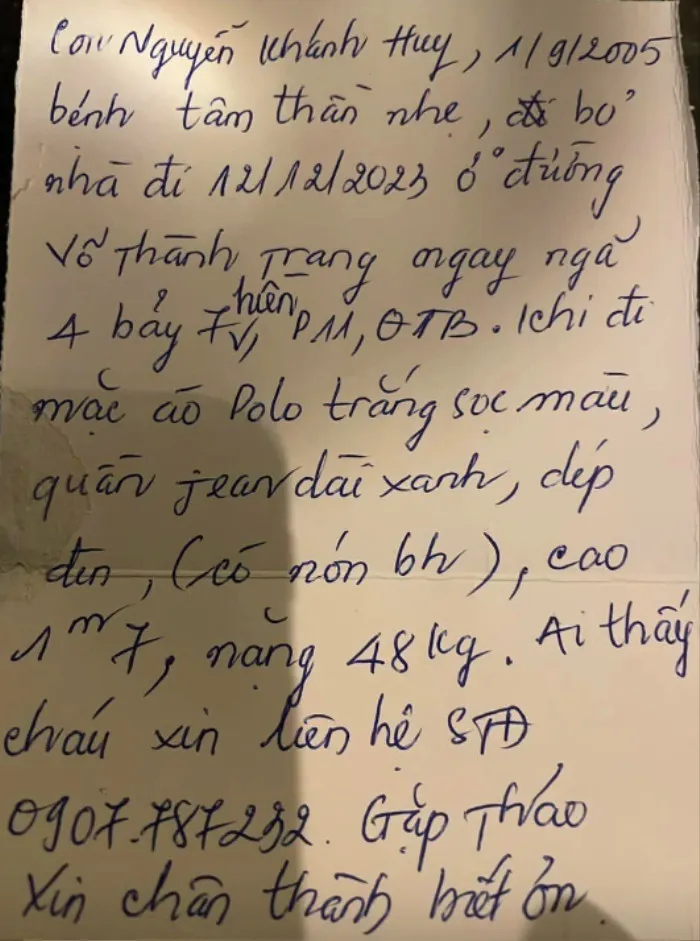 Con Nguyễn Khánh Huy, 1/9/2005
bénh tâm thần nhẹ, bỏ
nhà đi 12/12/2023 ở đường
Võ Thành Trang ngay ngã
4 bảy hiền, P11, QTB. Khi đi
mặc áo Polo trắng sọc màu,
quần jean dài xanh, dép
đen, (có nón bh), cao
1m7, nặng 48kg. Ai thấy
cháu xin liên hệ SĐT
0907.787232. Gặp Thảo
Xin chân thành biết ơn.